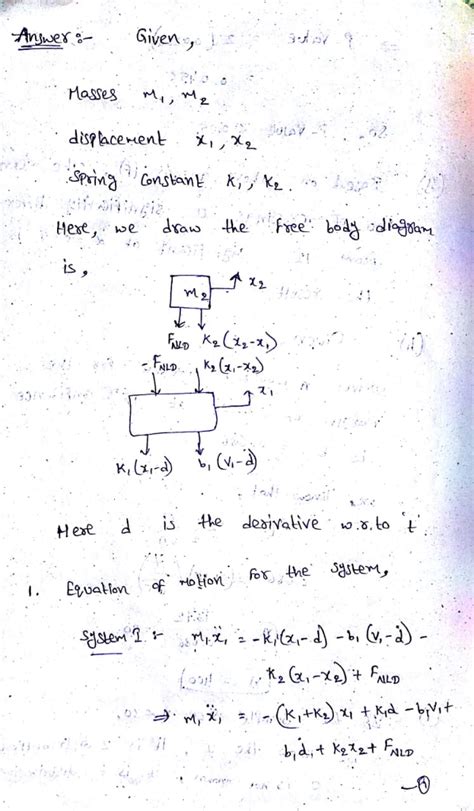 Answer :- Given,
Masses m₁, m₂
displacement x₁, x₂
spring constant K₁, K₂.
Here, we draw the free body diagram
is,
m₂ x₂
F_NLD K₂(x₂-x₁)
-F_NLD K₂(x₁-x₂)
x₁
K₁(x₁-d) b₁(v₁-ḋ)
Here d is the derivative w.r.to 't'.
1. Equation of Motion for the system,
System I :- m₁ẍ₁ = -K₁(x₁-d) -b₁(v₁-ḋ) -
K₂(x₁-x₂) + F_NLD
⇒ m₁ẍ₁ = -(K₁+K₂)x₁ + K₁d -b₁v₁ +
b₁ḋ₁ + K₂x₂ + F_NLD
—①